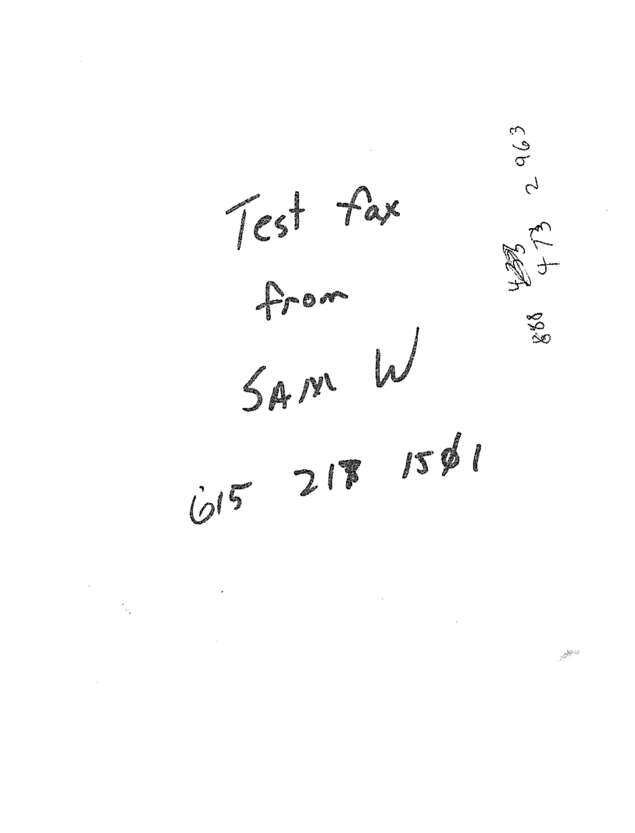 Test fax
from
SAM W
615 218 1501
888 473 2963